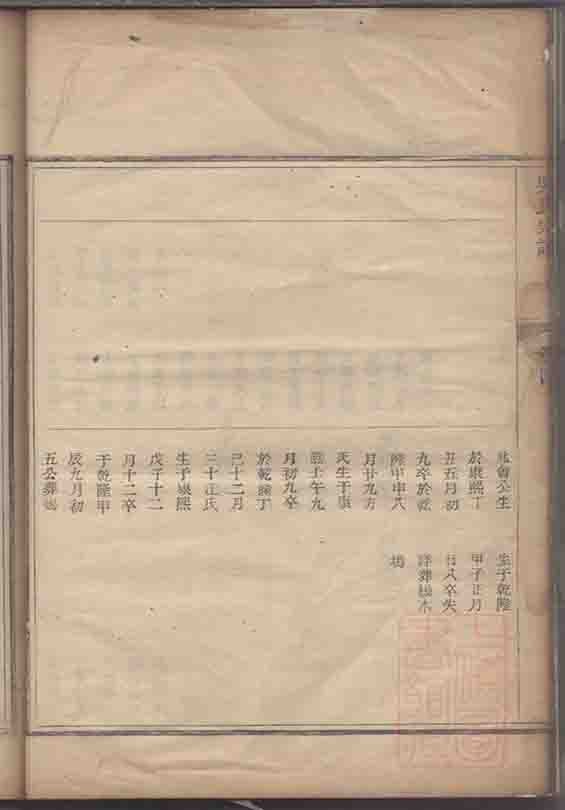 魯公生
於康熙丁
丑五月初
九卒於乾
隆甲申八
月廿九方
氏生于康
熙壬午九
月初九卒
於乾隆丁
己十二月
三十汪氏
生于康熙
戊子十二
月十二卒
于乾隆甲
辰九月初
五公葬
生于乾隆
甲子正月
廿八卒失
詳葬松木
塢